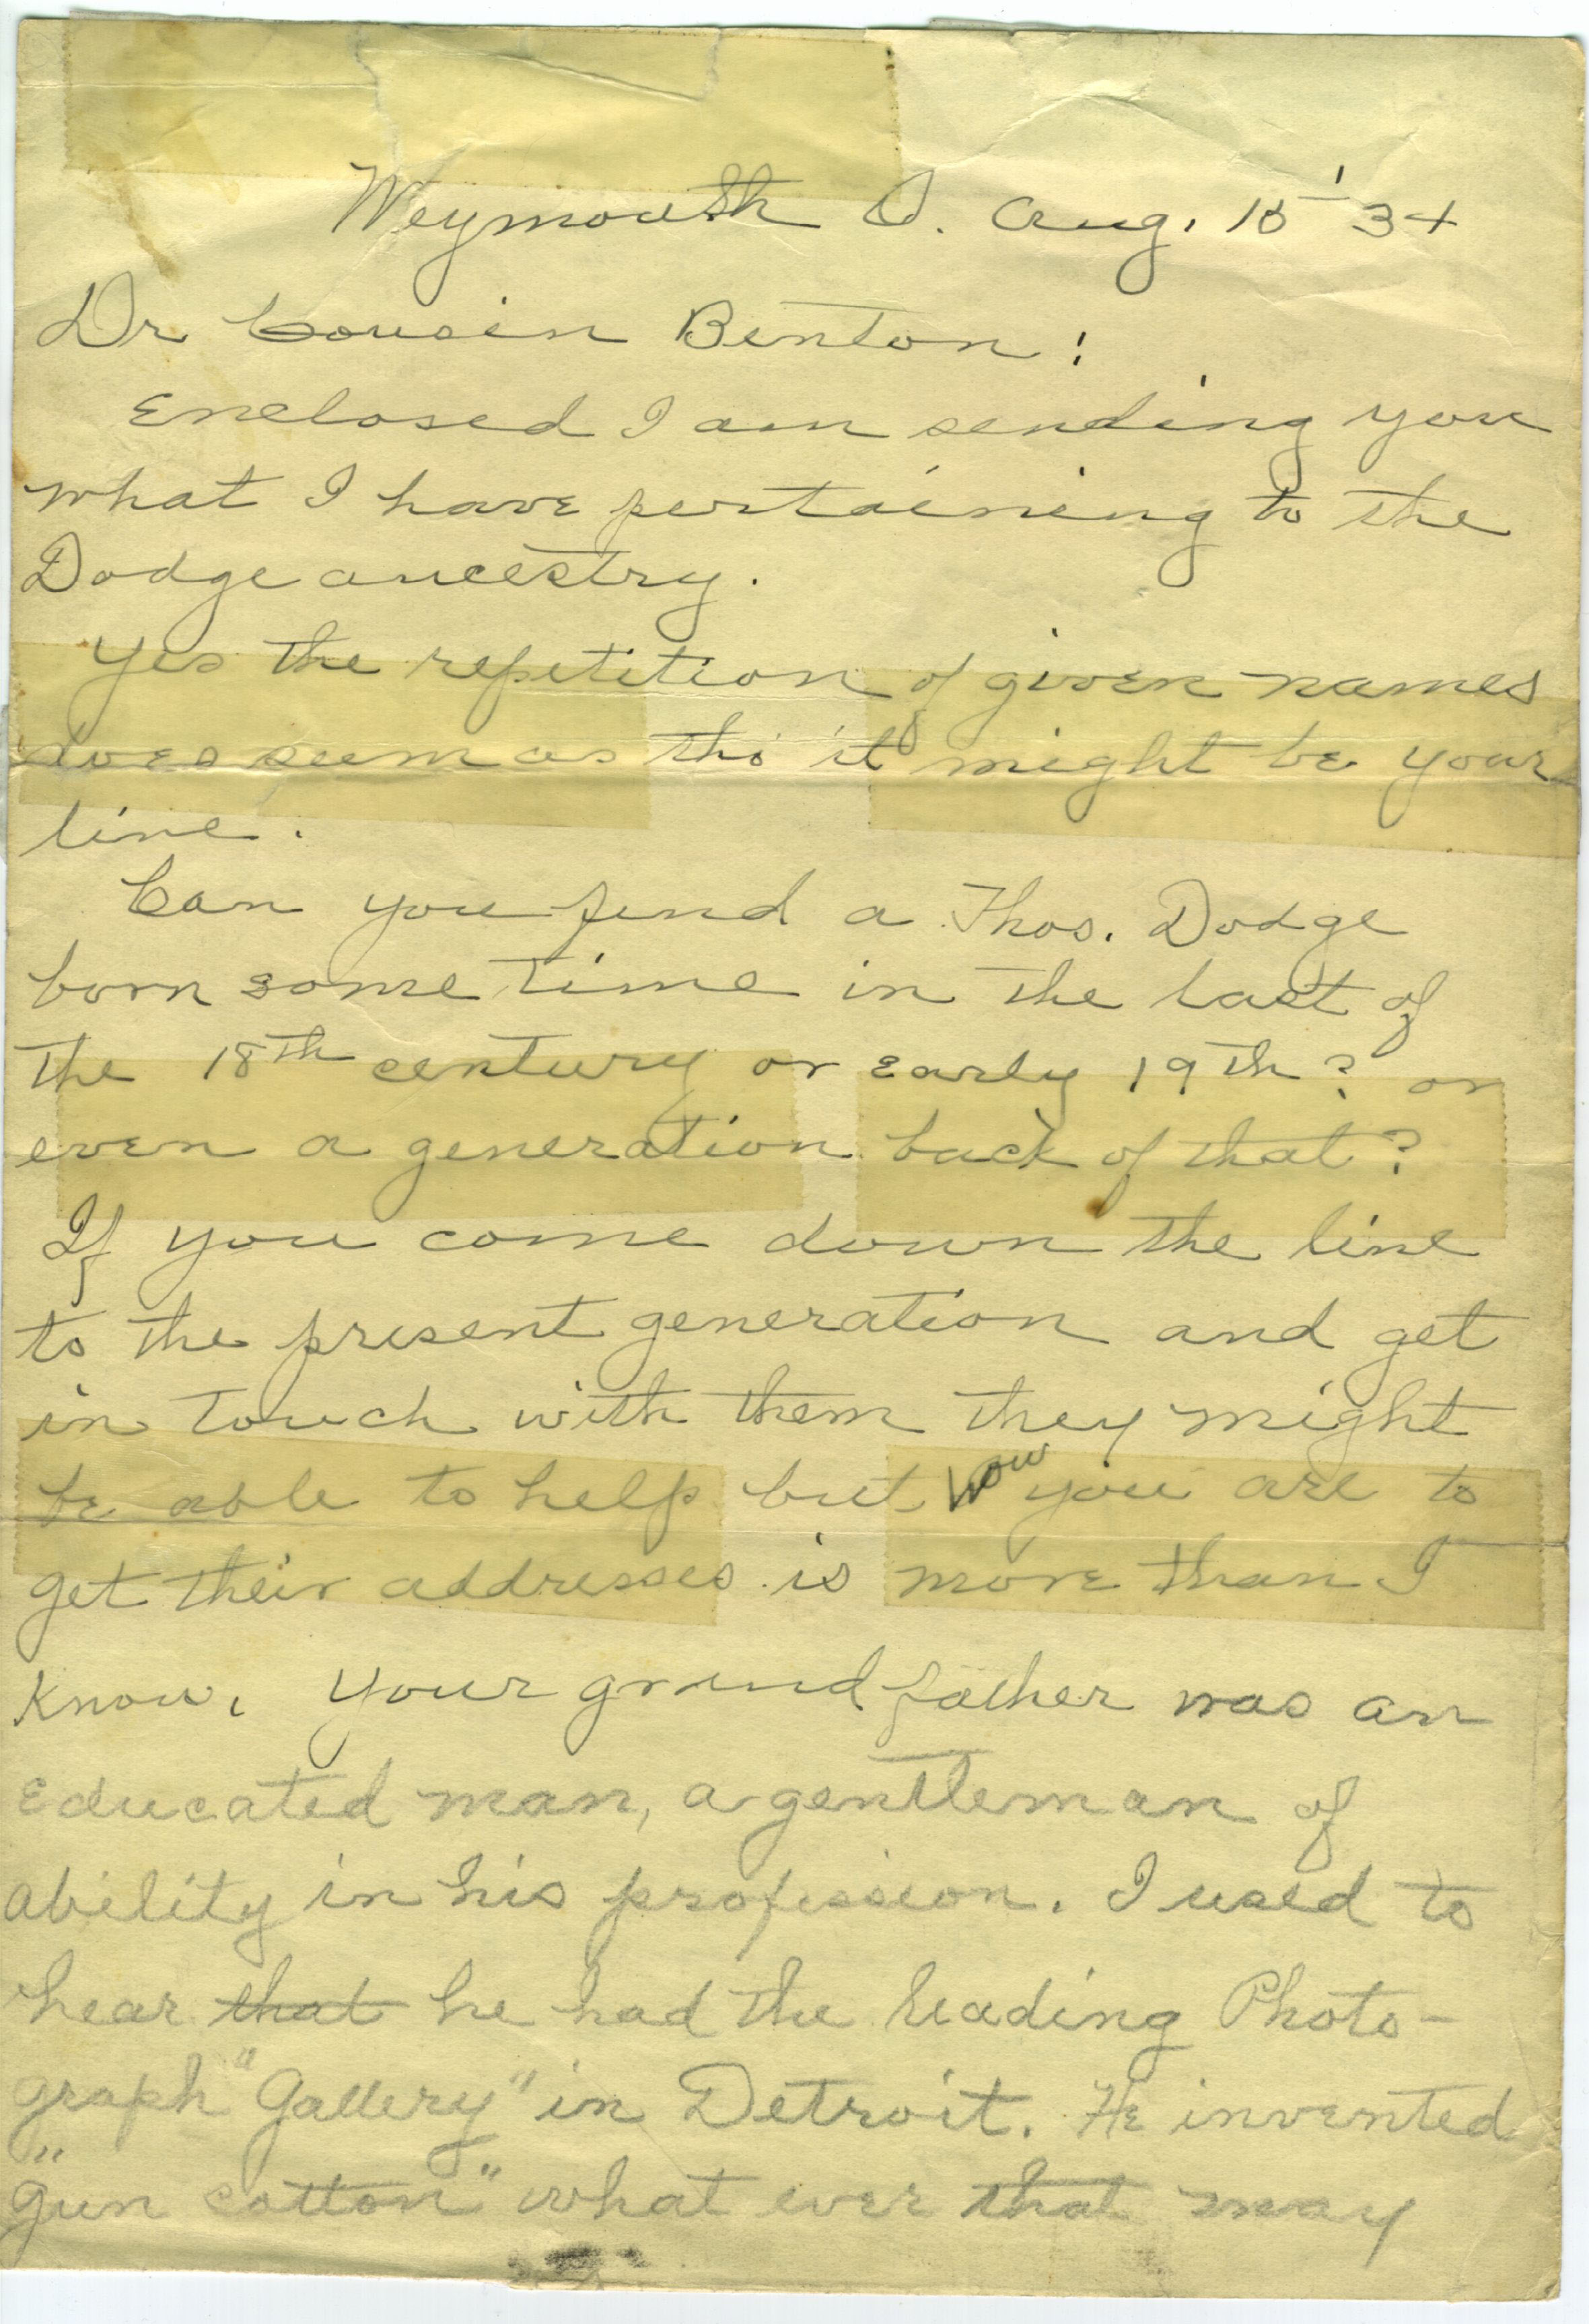 Weymouth O. Aug. 15-'34
Dr Cousin Benton:
Enclosed I am sending you
what I have pertaining to the
Dodge ancestry.
Yes the repetition of given names
does seem as tho' it might be your
line.
Can you find a Thos. Dodge
born some time in the last of
the 18th century or early 19th? or
even a generation back of that?
If you come down the line
to the present generation and get
in touch with them they might
be able to help but how you are to
get their addresses is more than I
know. Your grandfather was an
educated man, a gentleman of
ability in his profession. I used to
hear that he had the leading Photo-
graph "Gallery" in Detroit. He invented
"gun cotton" what ever that may